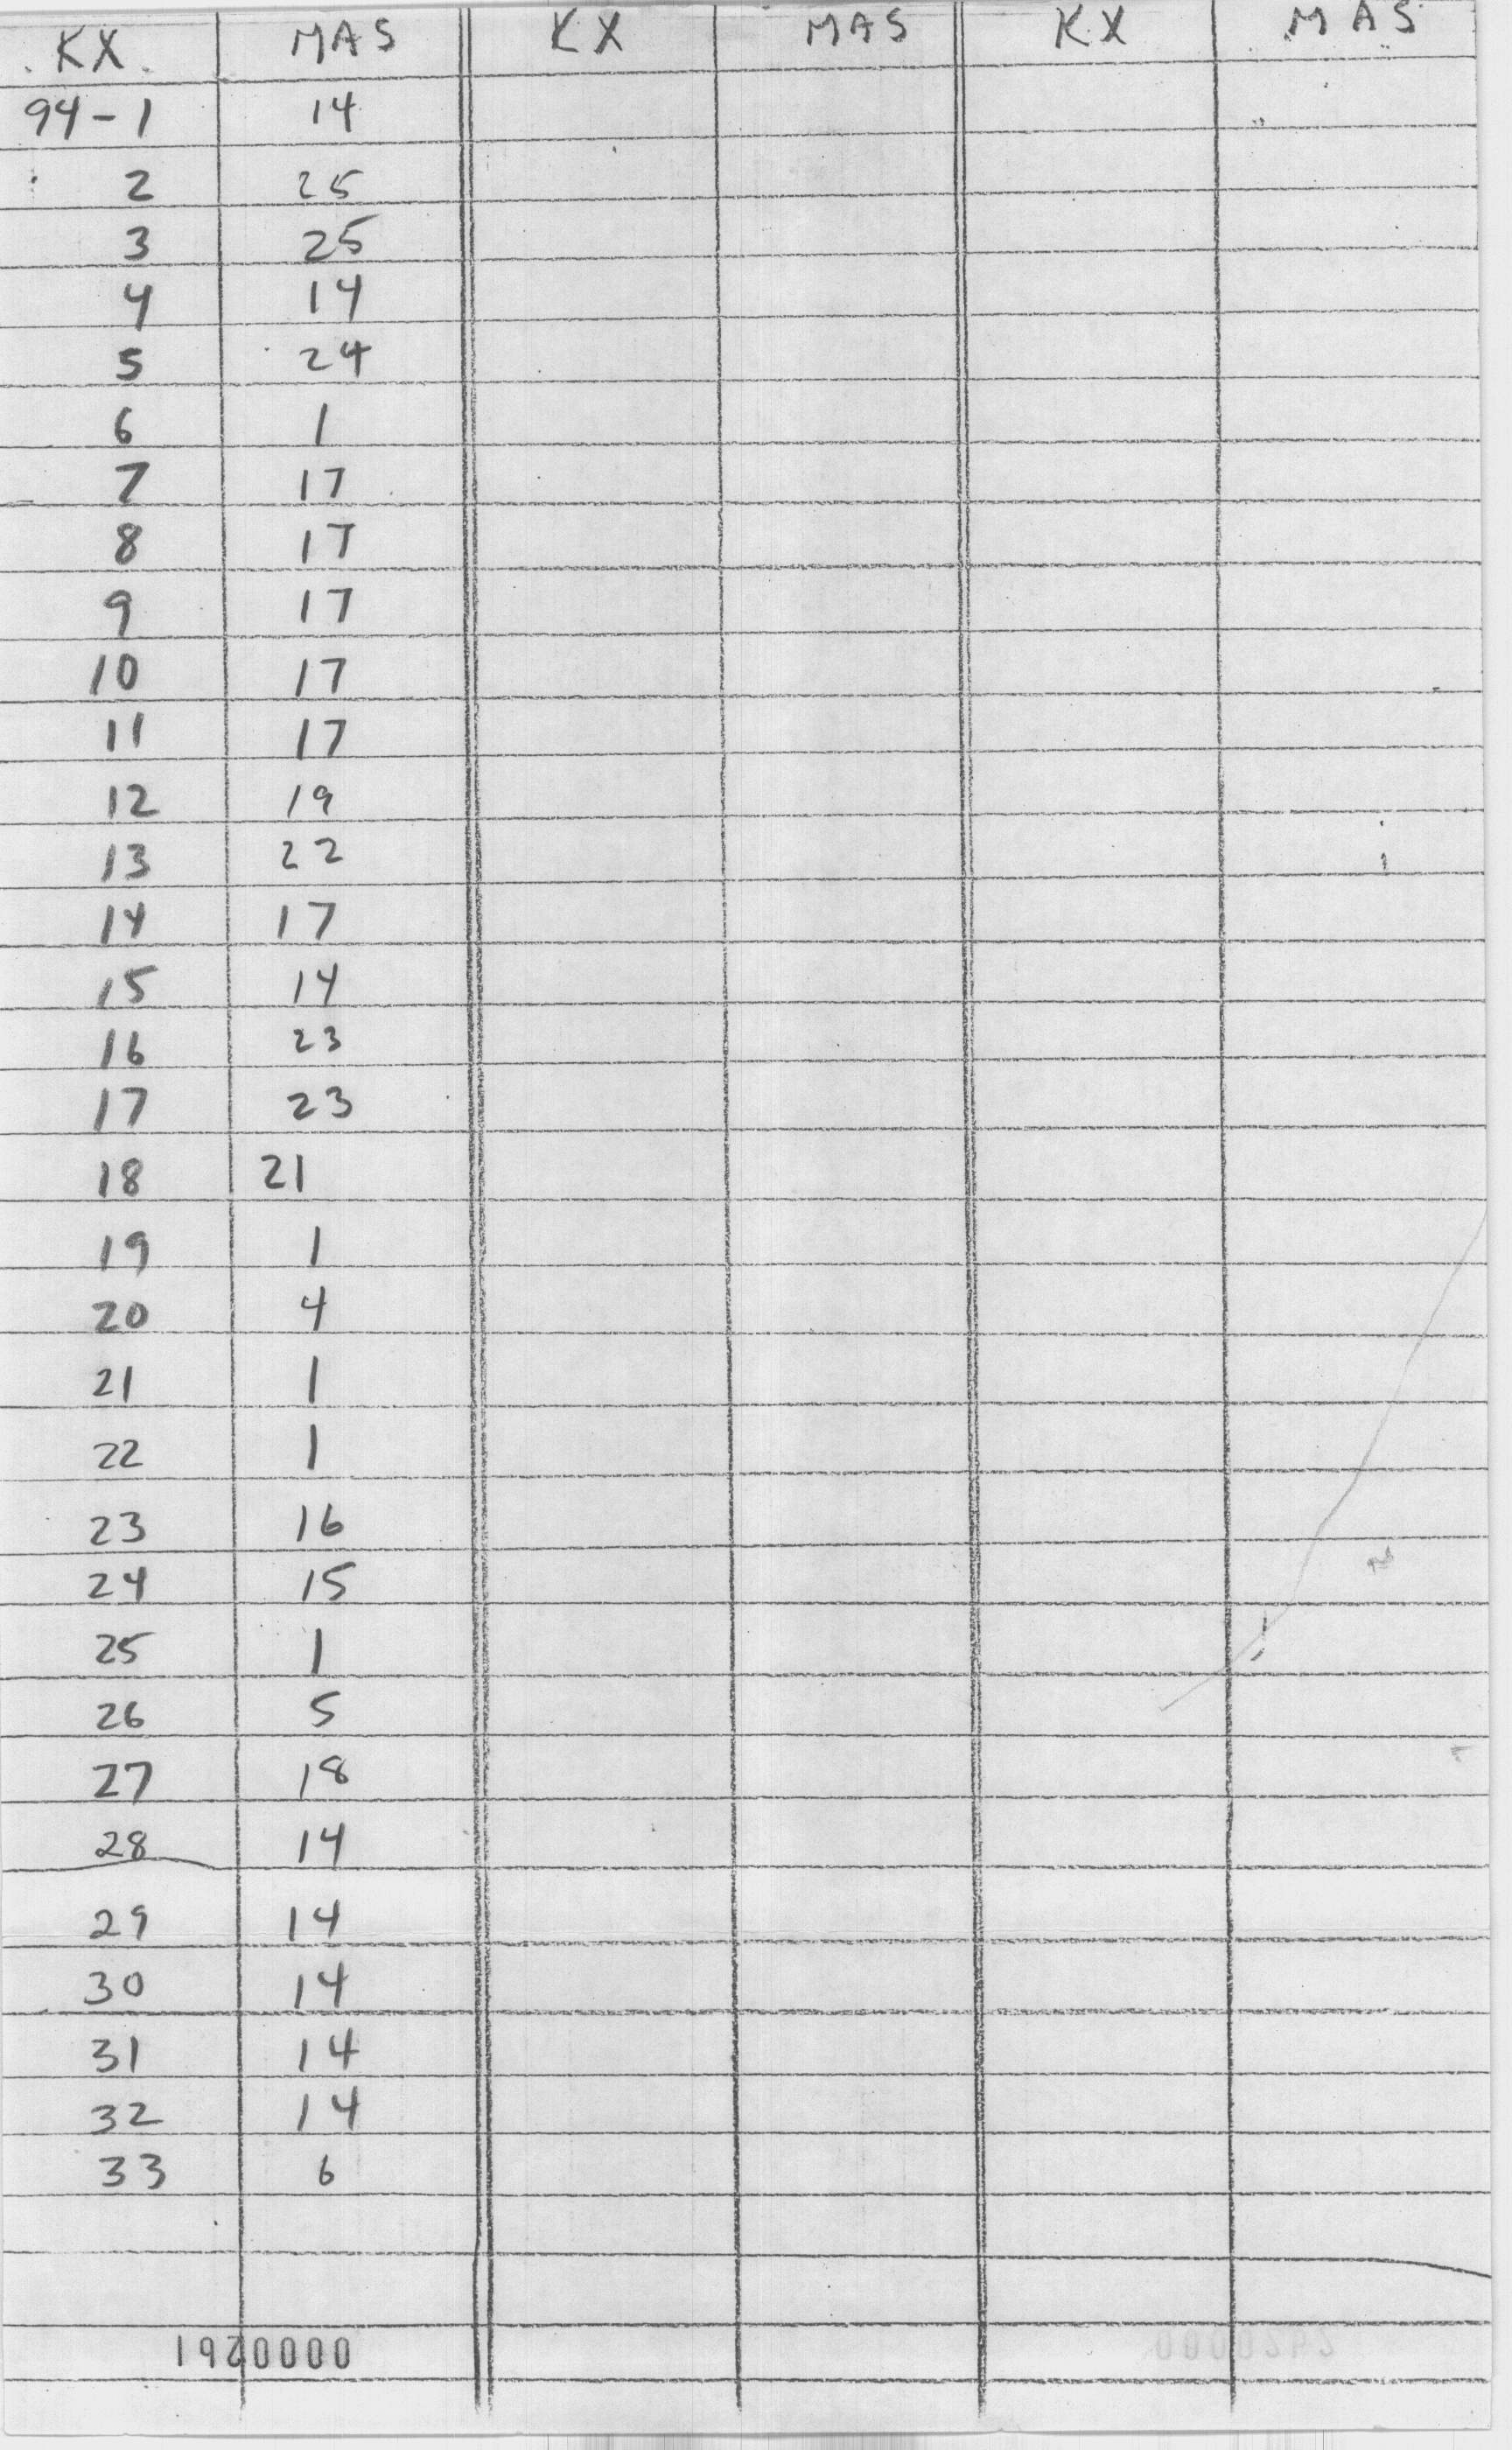 KX MAS KX MAS KX MAS
94-1 14
2 25
3 25
4 14
5 24
6 1
7 17
8 17
9 17
10 17
11 17
12 19
13 22
14 17
15 14
16 23
17 23
18 21
19 1
20 4
21 1
22 1
23 16
24 15
25 1
26 5
27 18
28 14
29 14
30 14
31 14
32 14
33 6
0000261